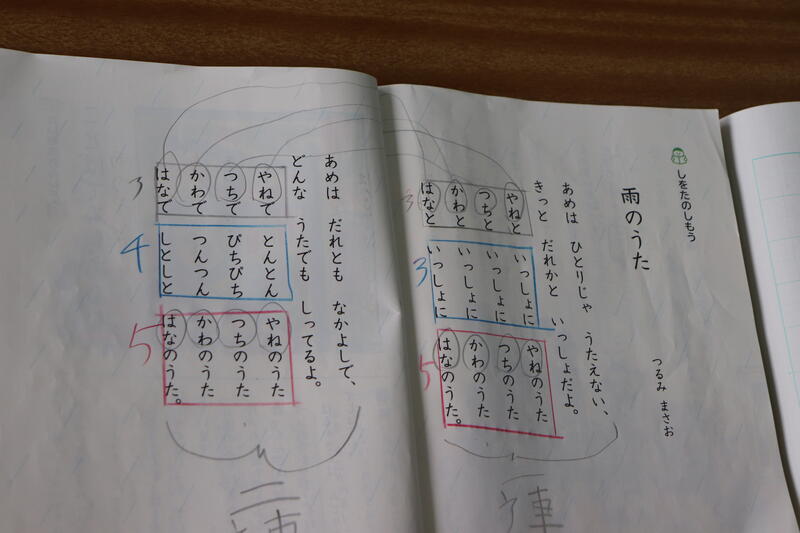 しをたのしもう
雨のうた
つるみ まさお
あめは ひとりじゃ うたえない、
きっと だれかと いっしょだよ。
やねと いっしょに やねのうた
つちと いっしょに つちのうた
かわと いっしょに かわのうた
はなと いっしょに はなのうた。
3
3
5
一連
あめは だれとも なかよしで、
どんな うたでも しってるよ。
やねで とんとん やねのうた
つちで ぴちぴち つちのうた
かわで つんつん かわのうた
はなで しとしと はなのうた。
3
4
5
二連